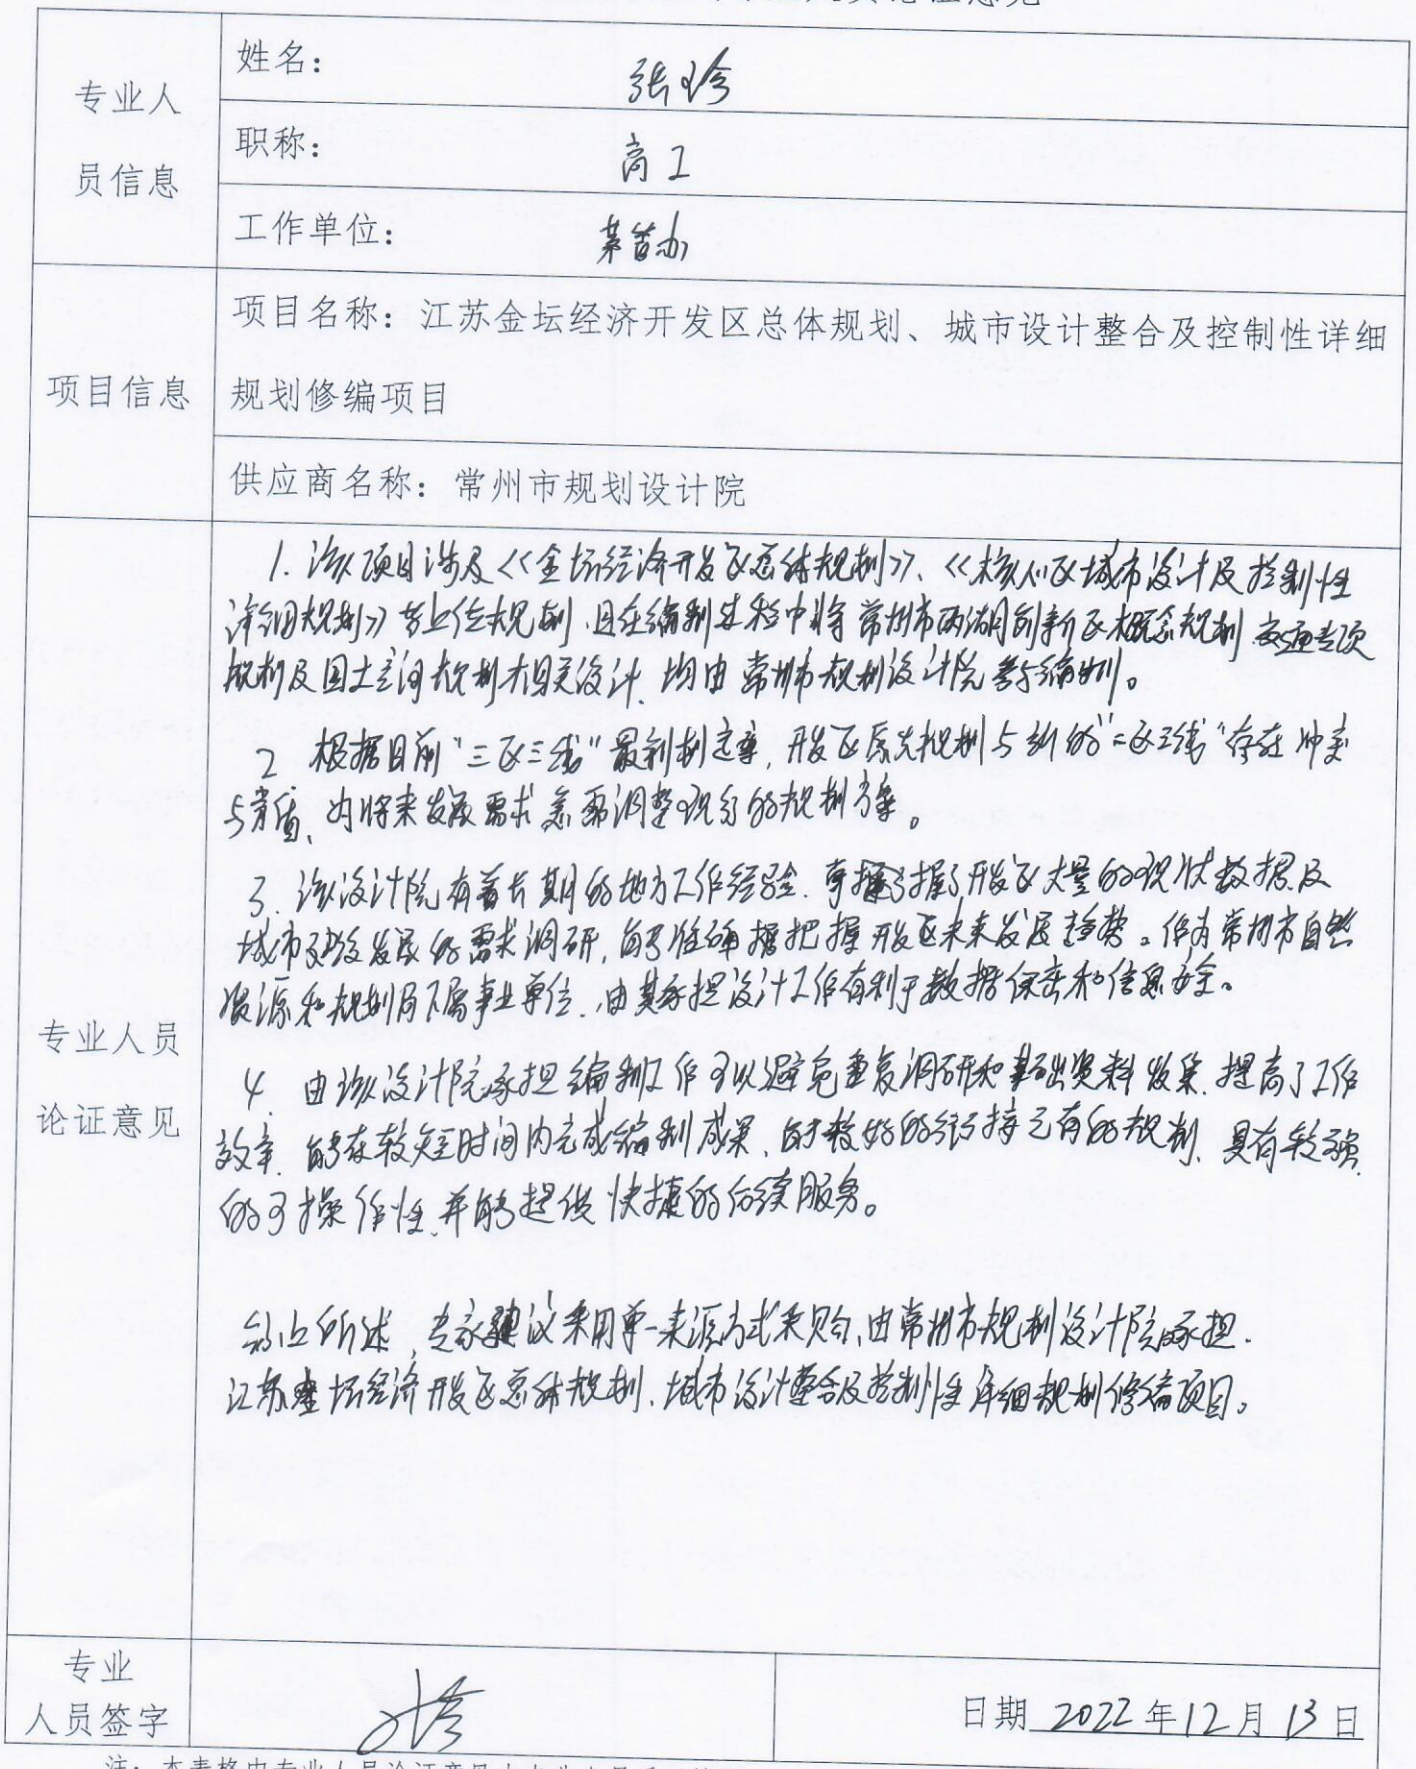 专业人
员信息
姓名：
张珍
职称：
高工
工作单位：
茅管办
项目信息
项目名称：江苏金坛经济开发区总体规划、城市设计整合及控制性详细
规划修编项目
供应商名称：常州市规划设计院
专业人员
论证意见
1. 该项目涉及《金坛经济开发区总体规划》、《核心区城市设计及控制性
详细规划》等上位规划，且在编制过程中将常州市两湖创新区概念规划、交通专项
规划及国土空间规划相关设计，均由常州市规划设计院参与编制。
2 根据目前"三区三线"最新划定案，开发区原先规划与新的"三区三线"存在冲突
与矛盾，为将来发展需求急需调整现有的规划方案。
3. 该设计院有着长期的地方工作经验，掌握了开发区大量的现状数据及
城市建设发展的需求调研，能够准确把握开发区未来发展趋势。作为常州市自然
资源和规划局下属事业单位，由其承担设计工作有利于数据保密和信息安全。
4. 由该设计院承担编制工作可以避免重复调研和基础资料收集，提高了工作
效率，能在较短时间内完成编制成果，能较好的衔接已有的规划，具有较强
的可操作性，并能够提供快捷的后续服务。
综上所述，专家建议采用单一来源方式采购，由常州市规划设计院承担
江苏金坛经济开发区总体规划、城市设计整合及控制性详细规划修编项目。
专业
人员签字
日期 2022年12月13日